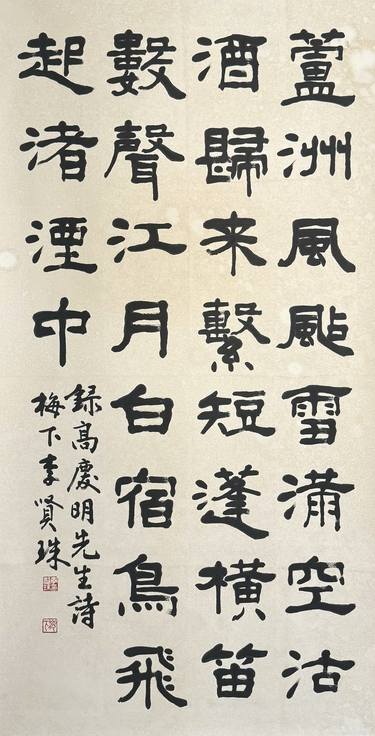 蘆洲風颭雪滿空沽
酒歸来繫短蓬橫笛
數聲江月白宿鳥飛
起渚湮中
録高慶明先生詩
梅下李賢珠